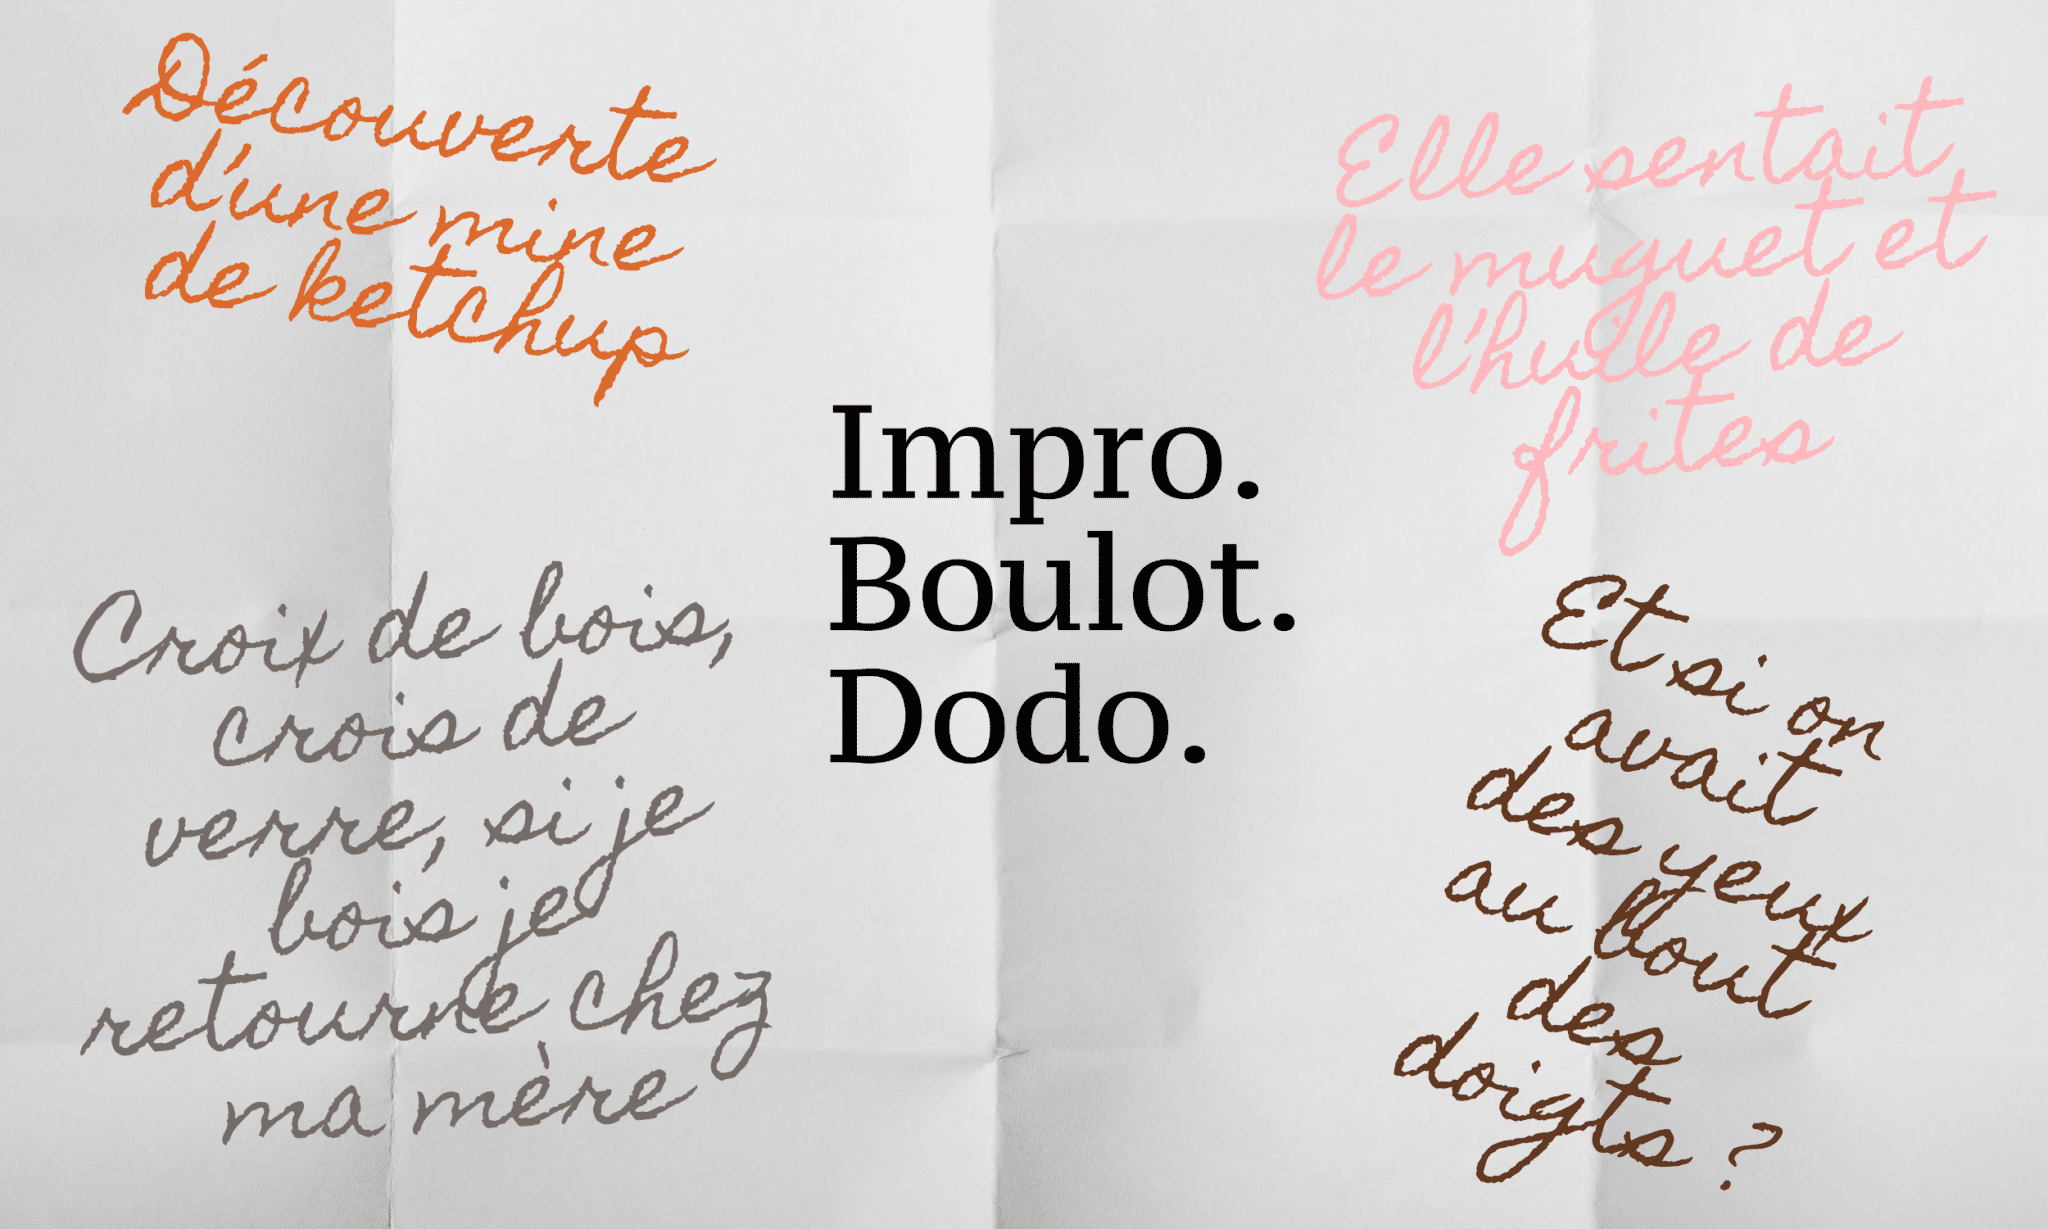 Découverte
d'une mine
de ketchup
Elle sentait
le muguet et
l'huile de
frites
Impro.
Boulot.
Dodo.
Croix de bois,
crois de
verre, si je
bois je
retourne chez
ma mère
Et si on
avait
des yeux
au bout
des
doigts ?